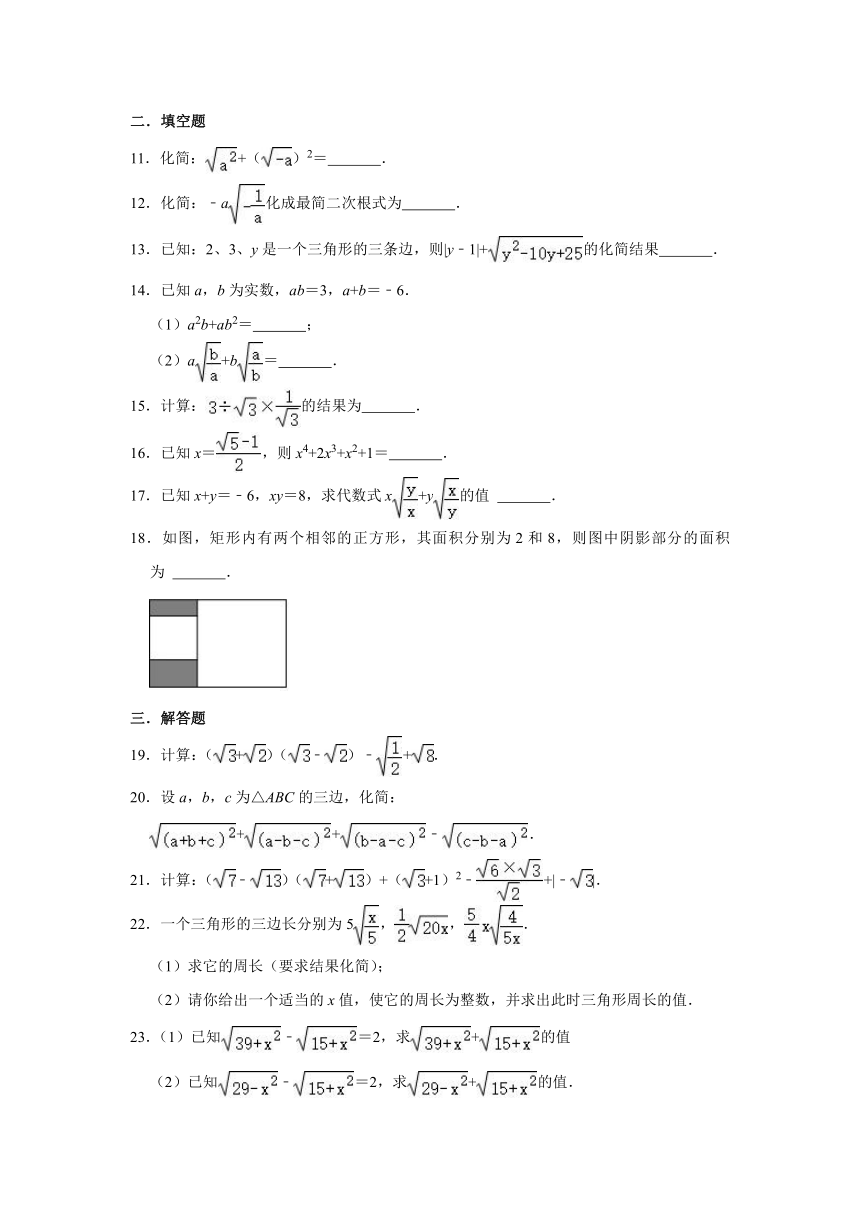 二．填空题
11．化简：√(a²)+（√(-a)）²＝　　．
12．化简：﹣a√(-1/a)化成最简二次根式为　　．
13．已知：2、3、y是一个三角形的三条边，则|y﹣1|+√(y²-10y+25)的化简结果　　．
14．已知a，b为实数，ab＝3，a+b＝﹣6．
（1）a²b+ab²＝　　；
（2）a√(b/a)+b√(a/b)＝　　．
15．计算：3÷√3×1/√3的结果为　　．
16．已知x＝(√5-1)/2，则x⁴+2x³+x²+1＝　　．
17．已知x+y＝﹣6，xy＝8，求代数式x√(y/x)+y√(x/y)的值　　．
18．如图，矩形内有两个相邻的正方形，其面积分别为2和8，则图中阴影部分的面积
为　　．
三．解答题
19．计算：（√3+√2）（√3﹣√2）﹣√(1/2)+√8．
20．设a，b，c为△ABC的三边，化简：
√((a+b+c)²)+√((a-b-c)²)+√((b-a-c)²)﹣√((c-b-a)²)．
21．计算：（√7﹣√13）（√7+√13）+（√3+1）²﹣(√6×√3)/√2+|﹣√3|．
22．一个三角形的三边长分别为5√(x/5)，1/2√(20x)，5/4 x√(4/(5x))．
（1）求它的周长（要求结果化简）；
（2）请你给出一个适当的x值，使它的周长为整数，并求出此时三角形周长的值．
23．（1）已知√(39+x²)﹣√(15+x²)＝2，求√(39+x²)+√(15+x²)的值
（2）已知√(29-x²)﹣√(15+x²)＝2，求√(29-x²)+√(15+x²)的值．